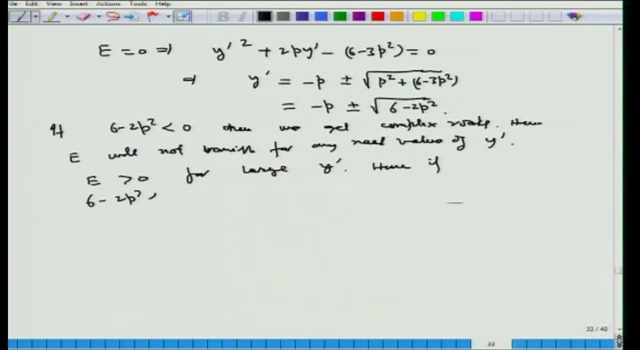 File Edit View Insert Actions Tools Help
E = 0 ⇒ y'² + 2py' - (6-3p²) = 0
⇒ y' = -p ± √(p² + (6-3p²))
= -p ± √(6-2p²).
If 6-2p² < 0 then we get complex roots. Hence
E will not vanish for any real value of y'.
E > 0 for large y'. Hence if
6-2p²,
33 / 40
33